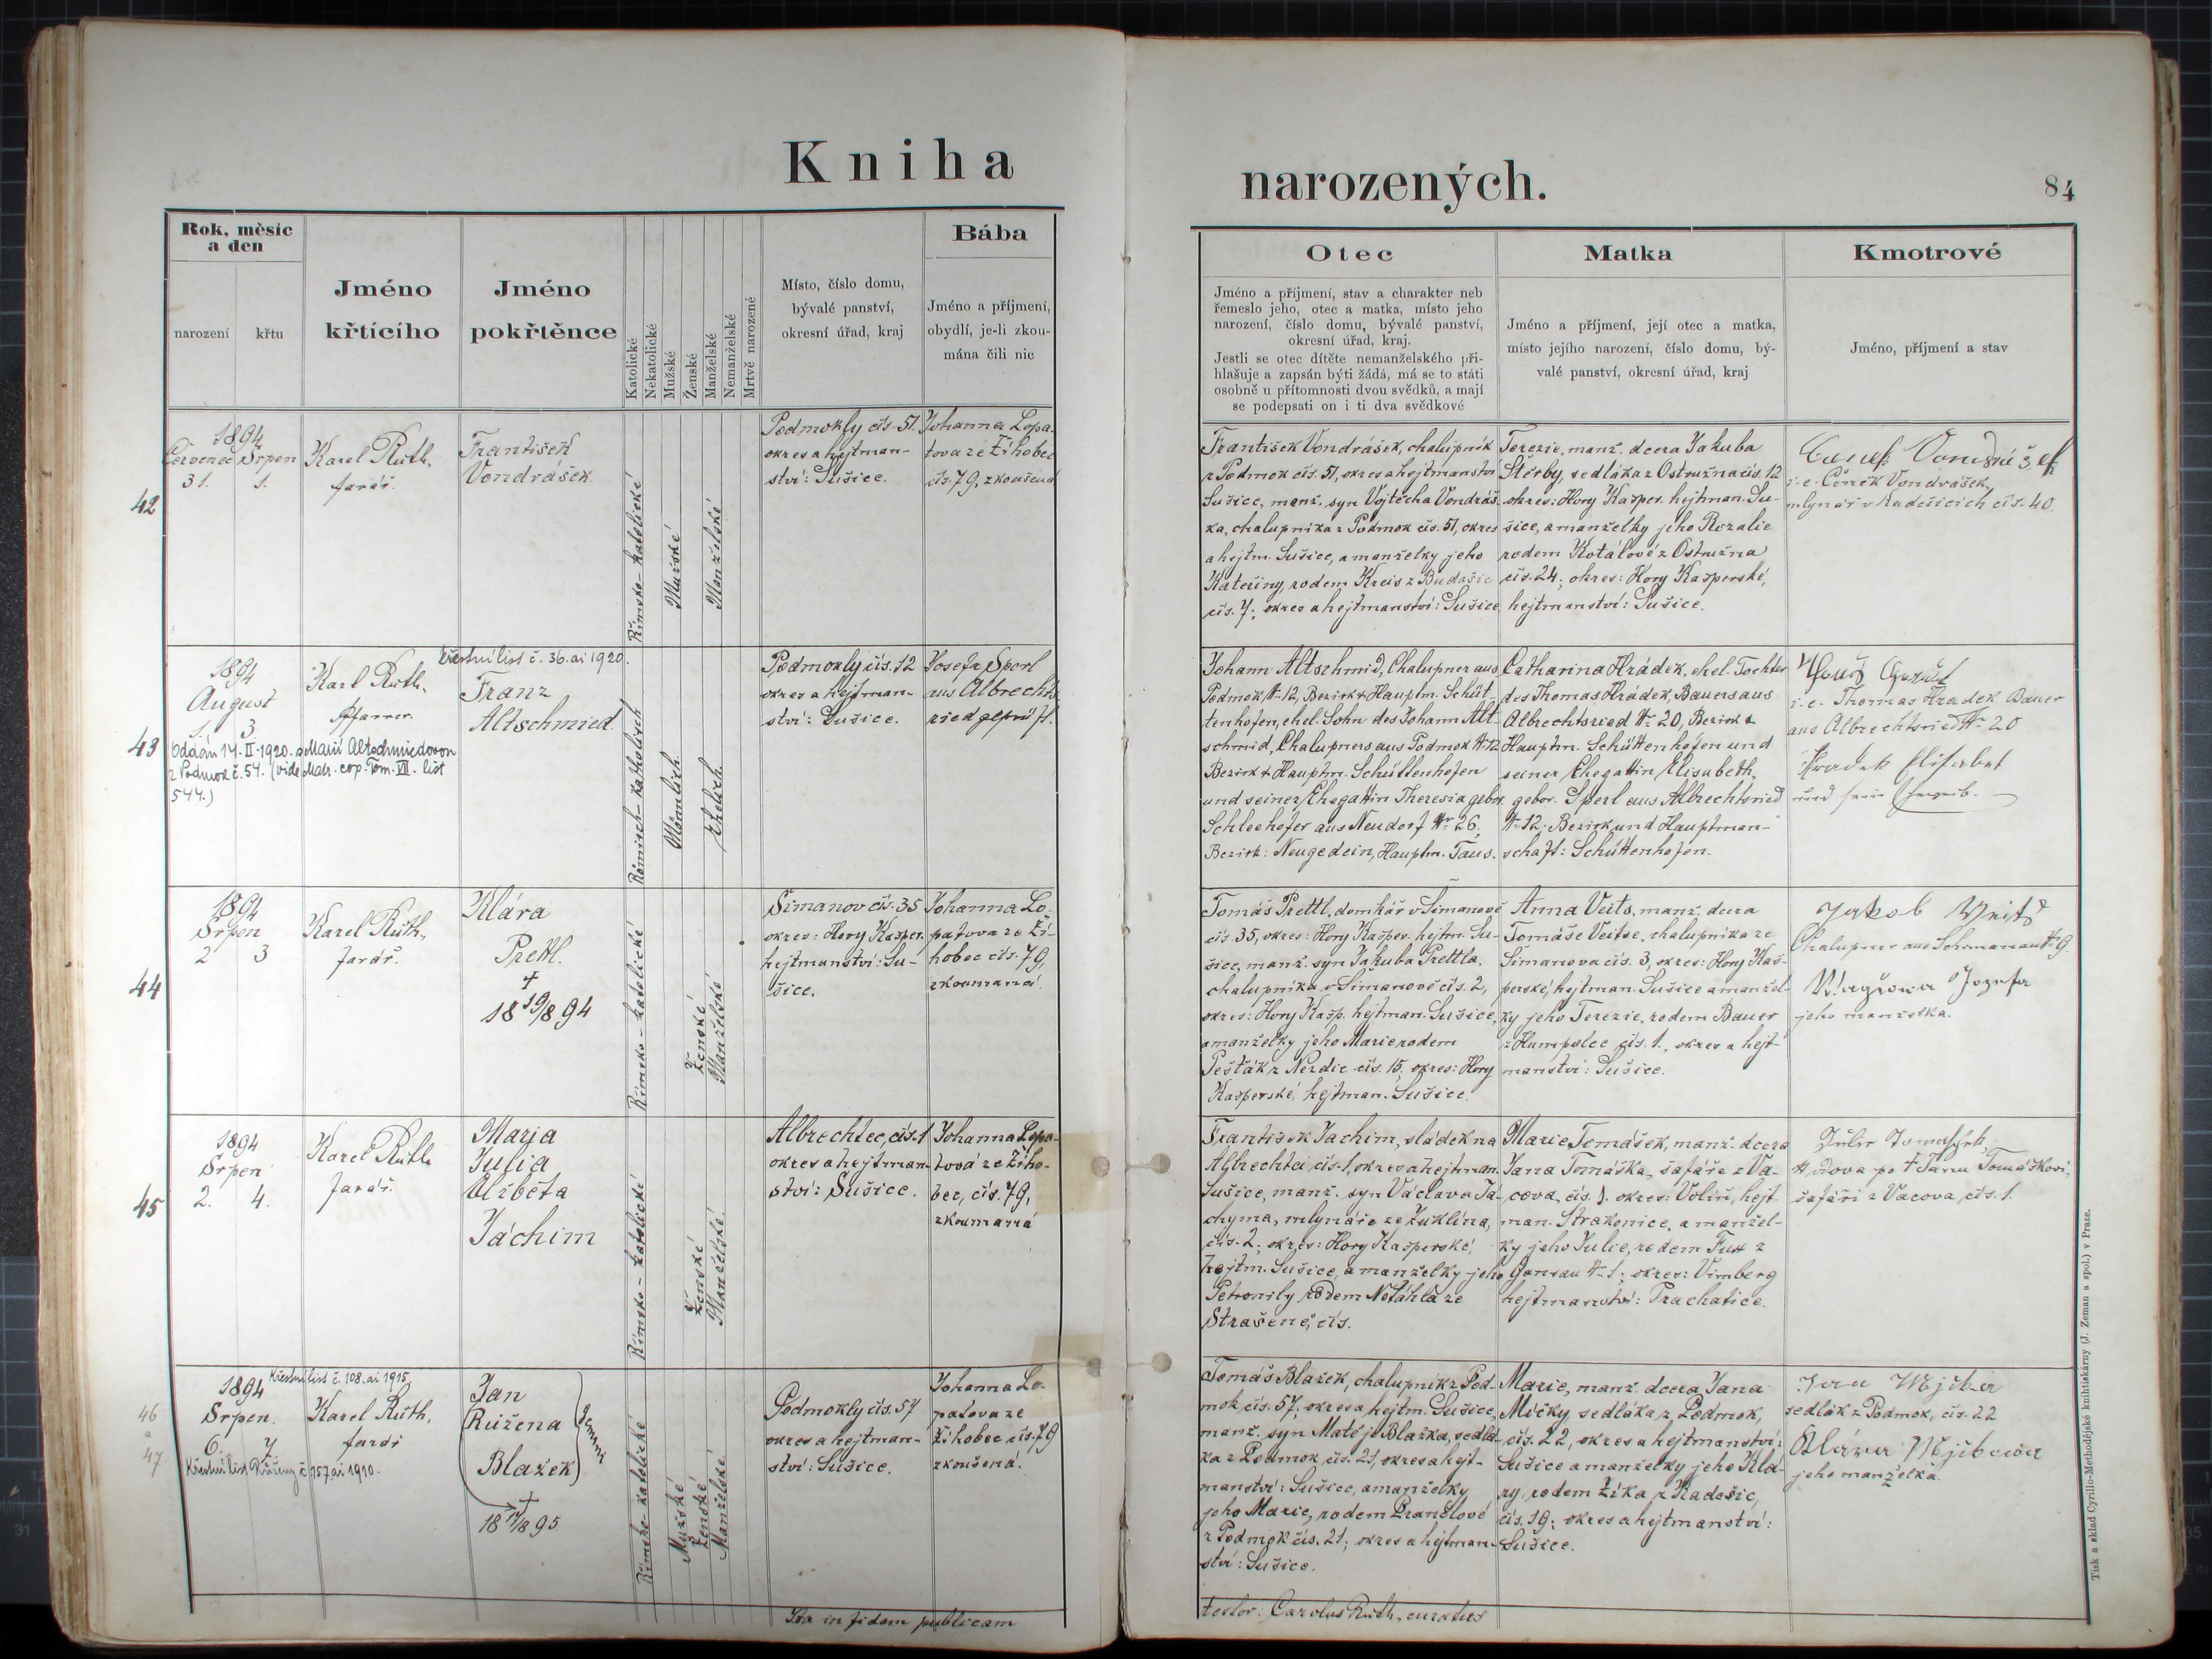 Kniha
Rok, měsíc
a den
narození
křtu
Jméno
křtícího
Jméno
pokřtěnce
Katolické
Nekatolické
Mužské
Ženské
Manželské
Nemanželské
Mrtvě narozené
Místo, číslo domu,
bývalé panství,
okresní úřad, kraj
Bába
Jméno a příjmení,
obydlí, je-li zkou-
mána čili nic
42
1894
Červenec Srpen
31. 1.
Karel Rüth,
farář.
František
Vondrášek
Římsko-katolické
Mužské
Manželské
Podmokly čís. 51.
okres a hejtman-
ství: Sušice.
Johanna Lopa-
tova ze Žihobec
čís. 79, zkoušená
43
1894
August
1. 3.
Oddán 14. II. 1920. s Marií Altschmiedovou
z Podmok č. 54. (vide Matr. cop. Tom. VII. list
544.)
Karl Rüth,
Pfarrer.
Křestní list č. 36. ai 1920.
Franz
Altschmied.
Römisch-katholisch
Männlich.
Ehelich.
Podmokly čís. 12
okres a hejtman-
ství: Sušice.
Josefa Sperl
aus Albrechts-
ried geprüft.
44
1894
Srpen
2 3
Karel Rüth,
farář.
Klára
Prettl.
†
18 19/8 94
Římsko-katolické
Ženské
Manželské
Šimanov čís. 35
okres: Hory Kašper.
hejtmanství: Su-
šice.
Johanna Lo-
patova ze Ži-
hobec čís. 79,
zkoumaná.
45
1894
Srpen
2. 4.
Karel Rüth
farář.
Maria
Julia
Alžběta
Jáchim
Římsko-katolické
Ženské
Manželské.
Albrechtec, čís. 1
okres a hejtman-
ství: Sušice.
Johanna Lopa-
tová ze Žiho-
bec, čís. 79,
zkoumaná
46
a
47
Křestní list č. 108. ai 1915.
1894
Srpen.
6. 7.
Křestní list Růženy č. 157 ai 1910.
Karel Rüth,
farář
Jan
Růžena
Blažek
gemini
†
18 17/8 95
Římsko-katolické
Mužské
Ženské
Manželské
Podmokly čís. 57
okres a hejtman-
ství: Sušice.
Johanna Lo-
patova ze
Žihobec čís. 79
zkoušená.
Ita in fidem publicam
narozených.
84
Otec
Jméno a příjmení, stav a charakter neb
řemeslo jeho, otec a matka, místo jeho
narození, číslo domu, bývalé panství,
okresní úřad, kraj.
Jestli se otec dítěte nemanželského při-
hlašuje a zapsán býti žádá, má se to státi
osobně u přítomnosti dvou svědků, a mají
se podepsati on i ti dva svědkové
Matka
Jméno a příjmení, její otec a matka,
místo jejího narození, číslo domu, bý-
valé panství, okresní úřad, kraj
Kmotrové
Jméno, příjmení a stav
František Vondrášek, chalupník
z Podmok čís. 51, okres a hejtmanství
Sušice, manž. syn Vojtěcha Vondráš-
ka, chalupníka z Podmok čís. 51, okres
a hejtm. Sušice, a manželky jeho
Kateřiny, rodem Kreis z Budašic
čís. 7; okres a hejtmanství: Sušice.
Terezie, manž. dcera Jakuba
Štěrby, sedláka z Ostružna čís. 12
okres: Hory Kašper. hejtman. Su-
šice, a manželky jeho Rozalie
rodem Kotálové z Ostružna
čís. 24; okres: Hory Kašperské,
hejtmanství: Sušice.
Vondrášek
i. e. Čeněk Vondrášek,
mlynář v Kadešicích čís. 40.
Johann Altschmid, Chalupner aus
Podmok № 12, Bezirk & Hauptm. Schüt-
tenhofen, ehel. Sohn des Johann Alt-
schmid, Chalupners aus Podmok № 12
Bezirk & Hauptm. Schüttenhofen
und seiner Ehegattin Theresia gebor.
Schleehofer aus Neudorf Nr. 26,
Bezirk: Neugedein, Hauptm. Taus.
Catharina Hrádek, ehel. Tochter
des Thomas Hrádek, Bauers aus
Albrechtsried № 20, Bezirk &
Hauptm. Schüttenhofen und
seiner Ehegattin Elisabeth,
gebor. Sperl aus Albrechtsried
№ 12; Bezirk und Hauptman-
schaft: Schüttenhofen.
i. e. Thomas Hradek Bauer
aus Albrechtsried № 20
Hradek Elisabet
Tomáš Prettl, domkář v Šimanově
čís. 35, okres: Hory Kašper. hejtm. Su-
šice, manž. syn Jakuba Prettla,
chalupníka v Šimanově čís. 2,
okres: Hory Kašp. hejtman. Sušice,
a manželky jeho Marie rodem
Pešták z Nezdic čís. 15, okres: Hory
Kašperské, hejtman. Sušice.
Anna Veits, manž. dcera
Tomáše Veitse, chalupníka ze
Šimanova čís. 3, okres: Hory Kaš-
perské, hejtman. Sušice a manžel-
ky jeho Terezie, rodem Bauer
z Humpolce čís. 1., okres a hejt-
manství: Sušice.
Jakob Weits
Chalupner aus Schimanau № 9.
Josefa
jeho manželka.
František Jachim, sládek na
Albrechtci čís. 1, okres a hejtman.
Sušice, manž. syn Václava Já-
chyma, mlynáře ze Žuklína,
čís. 2; okres: Hory Kašperské,
hejtm. Sušice, a manželky jeho
Petronily rodem Netáhla ze
Strašené, čís.
Marie Tomášek, manž. dcera
Jana Tomáška, šafáře z Va-
cova, čís. 1. okres: Volíň, hejt-
man. Strakonice, a manžel-
ky jeho Julie, rodem Fux z
Gansau № 1; okres: Vimberg
hejtmanství: Prachatice.
Julie Tomaschek,
vdova po † Janu Tomáškovi,
šafáři z Vacova, čís. 1.
Tomáš Blažek, chalupník z Pod-
mok čís. 57; okres a hejtm. Sušice,
manž. syn Matěje Blažka, sedlá-
ka z Podmok čís. 21, okres a hejt-
manství: Sušice, a manželky
jeho Marie, rodem Prančlové
z Podmok čís. 21; okres a hejtman-
ství: Sušice.
Marie, manž. dcera Jana
Mičky, sedláka z Podmok,
čís. 22, okres a hejtmanství:
Sušice a manželky jeho Klá-
ry, rodem Žíka z Kadešic,
čís. 19; okres a hejtmanství:
Sušice.
Jan
sedlák z Podmok, čís. 22
Klára
jeho manželka.
testor: Carolus Rüth, curatus
Tisk a sklad Cyrillo-Methodějské knihtiskárny (J. Zeman a spol.) v Praze.